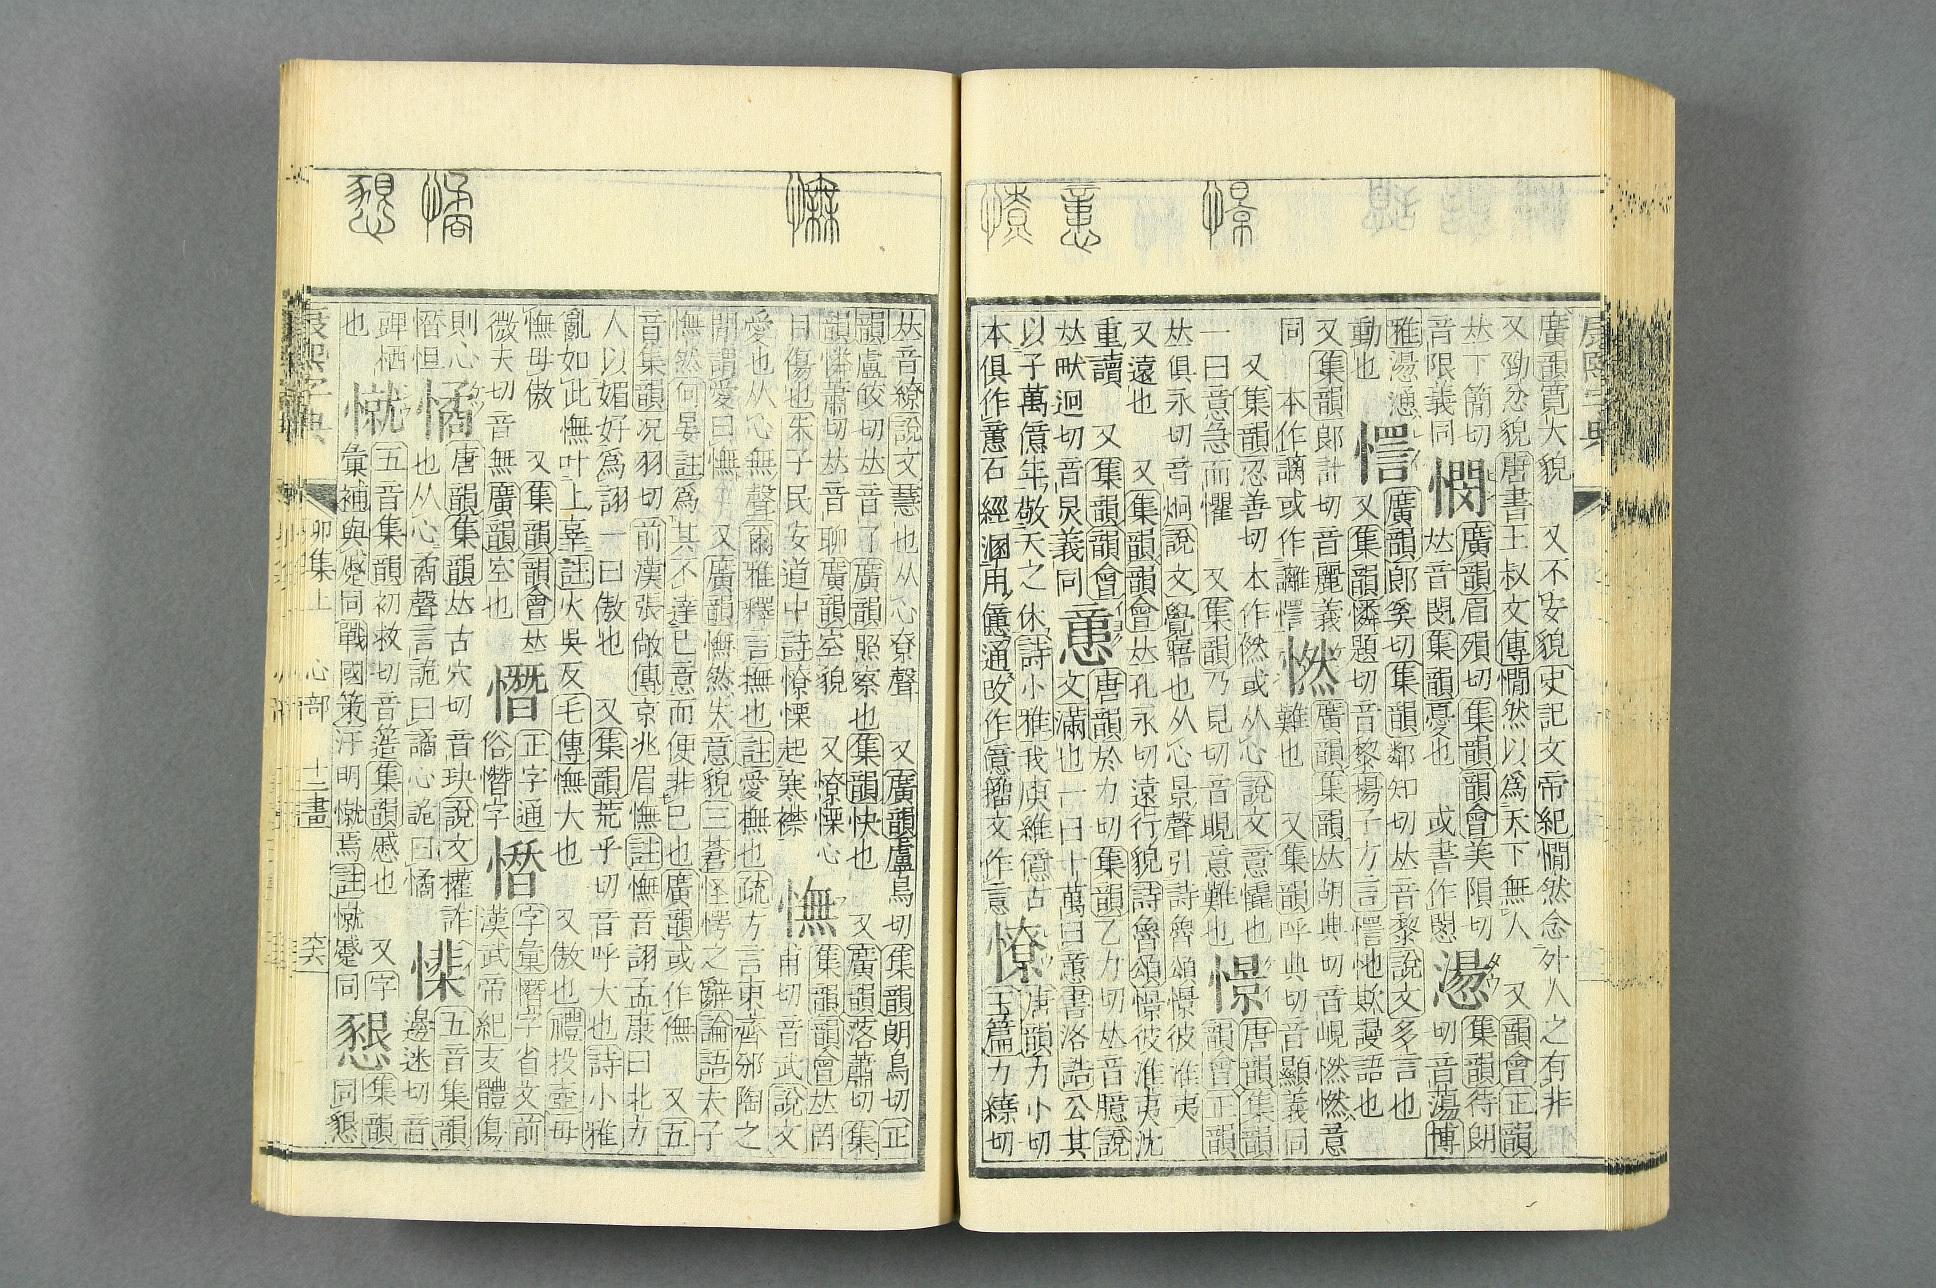 康熙字典
廣韻寬大貌　又不安貌史記文帝紀憪然念外人之有非
又勁忿貌唐書王叔文傳憪然以爲天下無人　又韻會正韻
𠀤下簡切　憫　廣韻眉殞切集韻韻會美隕切　愓　集韻待朗
音限義同　𠀤音閔集韻憂也　或書作閔　切音蕩博
雅愓憑　愕　廣韻郎奚切集韻鄰知切𠀤音黎說文多言也
動也　又集韻憐題切音黎揚子方言謰謱欺謾語也
又集韻郎計切音麗義　憖　廣韻集韻𠀤胡典切音峴憖憖意
同　本作謧或作讈　難也　又集韻呼典切音顯義同
又集韻忍善切本作然或从心說文意膬也　憬　唐韻集韻
一曰意急而懼　又集韻乃見切音晛意難也　韻會正韻
𠀤俱永切音炯說文覺寤也从心景聲引詩魯頌憬彼淮夷
又遠也　又集韻韻會𠀤孔永切遠行貌詩魯頌憬彼淮夷沈
重讀　又集韻韻會　唐韻於力切集韻乙力切𠀤音臆說
𠀤畎迥切音炅義同　意　文滿也一曰十萬曰意書洛誥公其
以予萬億年敬天之休詩小雅我庾維億古　唐韻力小切
本俱作意石經溷用億通攺作億籀文作𢡃　憭　玉篇力繞切
𠀤音繚說文慧也从心尞聲　又廣韻盧鳥切集韻朗鳥切正
韻盧皎切𠀤音了廣韻照察也集韻快也　又廣韻落蕭切集
韻憐蕭切𠀤音聊廣韻空貌　又憭慄心　憮　集韻韻會𠀤罔
自傷也朱子民安道中詩憭慄起寒襟　甫切音武說文
愛也从心無聲爾雅釋言憮撫也註愛撫也疏方言東齊郊陶之
閒謂愛曰憮　又廣韻憮然失意貌三蒼怪愕之辭論語夫子
憮然何晏註爲其不達已意而便非已也廣韻或作㒇　又五
音集韻况羽切前漢張敞傳京兆眉憮註憮音詡孟康曰北方
人以媚好爲詡一曰傲也　又集韻荒乎切音呼大也詩小雅
亂如此憮叶上辜註火吳反毛傳憮大也　又傲也禮投壺毋
憮毋傲　又集韻韻會𠀤　憯　正字通　憯　字彙憯字省文前
微夫切音無廣韻空也　俗憯字　漢武帝紀支體傷
則心　憰　唐韻集韻𠀤古穴切音玦說文權詐　㦅　五音集韻
憯怛　也从心矞聲言詭曰譎心詭曰憰　邊迷切音
豍栖　憱　五音集韻初救切音簉集韻慼也　又字　懇　集韻
也　彙補與蹙同戰國策汗明憱焉註憱蹙同　同懇
康熙字典　卯集上　心部　十二畫　六六